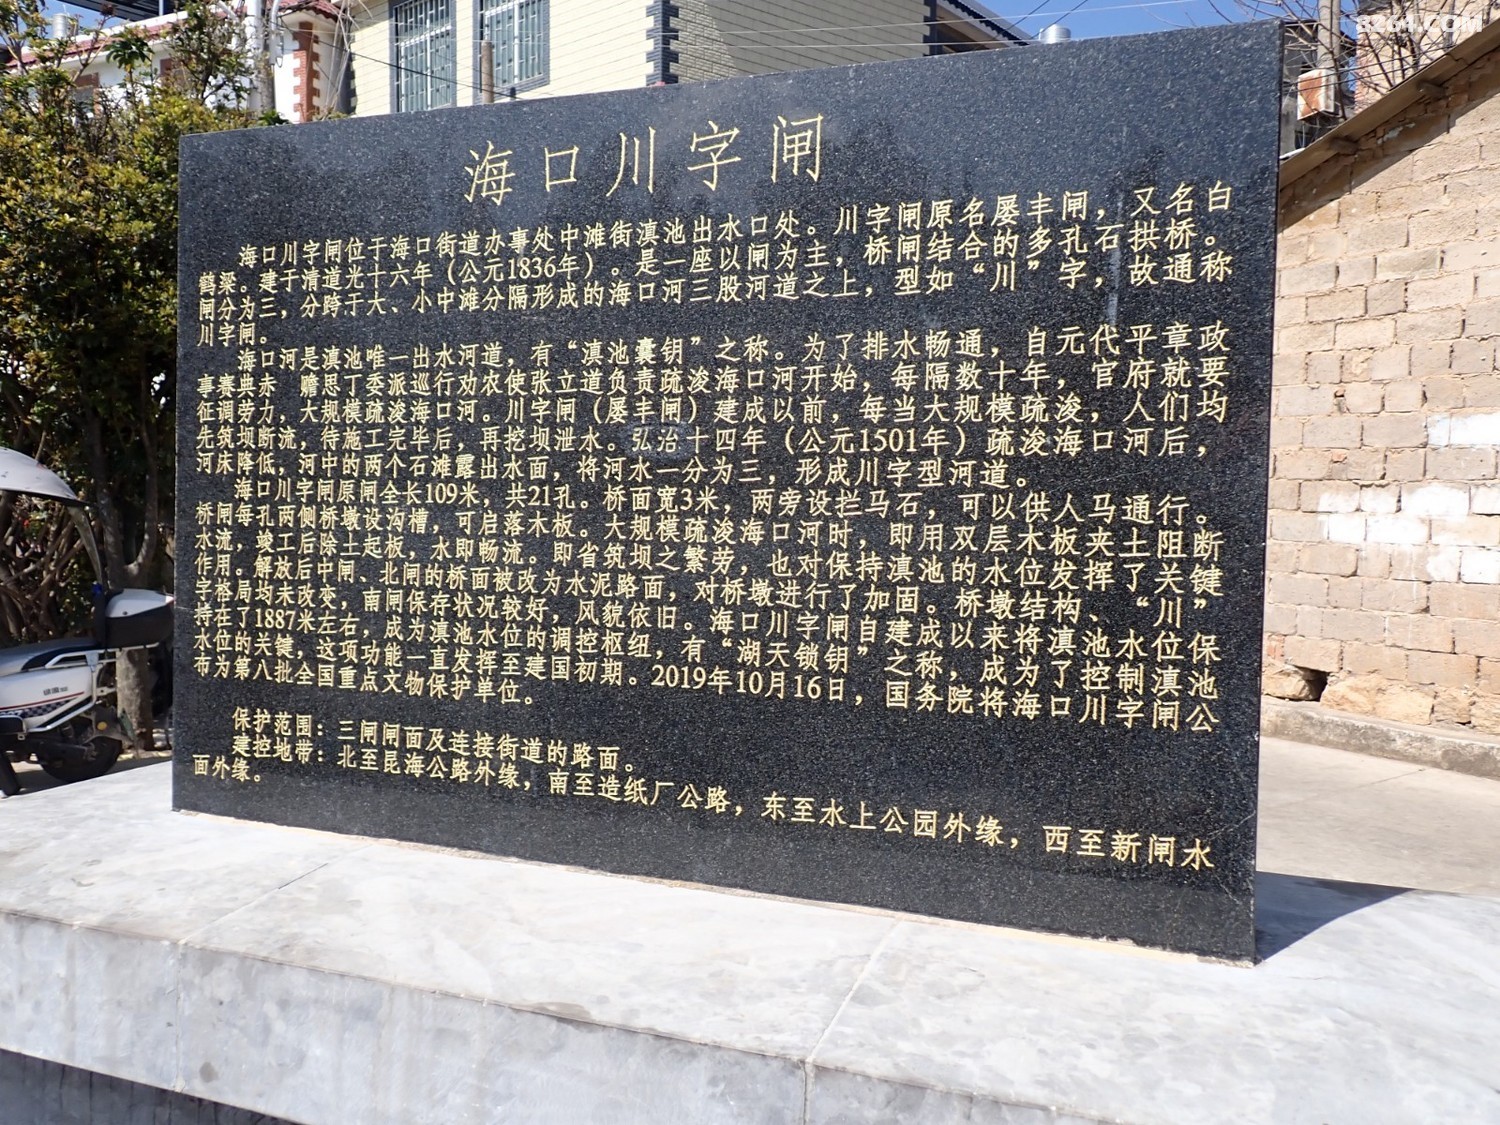 8264.COM
海口川字闸
海口川字闸位于海口街道办事处中滩街滇池出水口处。川字闸原名屡丰闸，又名白
鹤梁。建于清道光十六年（公元1836年）。是一座以闸为主，桥闸结合的多孔石拱桥。
闸分为三，分跨于大、小中滩分隔形成的海口河三股河道之上，型如“川”字，故通称
川字闸。
海口河是滇池唯一出水河道，有“滇池囊钥”之称。为了排水畅通，自元代平章政
事赛典赤 赡思丁委派巡行劝农使张立道负责疏浚海口河开始，每隔数十年，官府就要
征调劳力，大规模疏浚海口河。川字闸（屡丰闸）建成以前，每当大规模疏浚，人们均
先筑坝断流，待施工完毕后，再挖坝泄水。弘治十四年（公元1501年）疏浚海口河后，
河床降低，河中的两个石滩露出水面，将河水一分为三，形成川字型河道。
海口川字闸原闸全长109米，共21孔。桥面宽3米，两旁设拦马石，可以供人马通行。
桥闸每孔两侧桥墩设沟槽，可启落木板。大规模疏浚海口河时，即用双层木板夹土阻断
水流，竣工后除土起板，水即畅流。即省筑坝之繁劳，也对保持滇池的水位发挥了关键
作用。解放后中闸、北闸的桥面被改为水泥路面，对桥墩进行了加固。桥墩结构、“川”
字格局均未改变，南闸保存状况较好，风貌依旧。海口川字闸自建成以来将滇池水位保
持在了1887米左右，成为滇池水位的调控枢纽，有“湖天锁钥”之称，成为了控制滇池
水位的关键，这项功能一直发挥至建国初期。2019年10月16日，国务院将海口川字闸公
布为第八批全国重点文物保护单位。
保护范围：三闸闸面及连接街道的路面。
建控地带：北至昆海公路外缘，南至造纸厂公路，东至水上公园外缘，西至新闸水
面外缘。